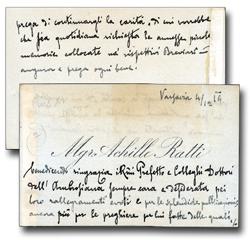 prega di continuargli la carità, di cui vorrebbe
che fia quotidiana richiesta le annesse piccole
memorie collocate nei rispettivi Breviari —
augurar e prega ogni bene.
Varsavia 4/12 19
Mgr. Achille Ratti
benedicenti ringrazia i Rmi Prefetto e Colleghi Dottori
dell'Ambrosiana sempre cara e desiderata pei
loro rallegramenti e per le splendide pubblicazioni
ancora più per le preghiere per lui fatte delle quali